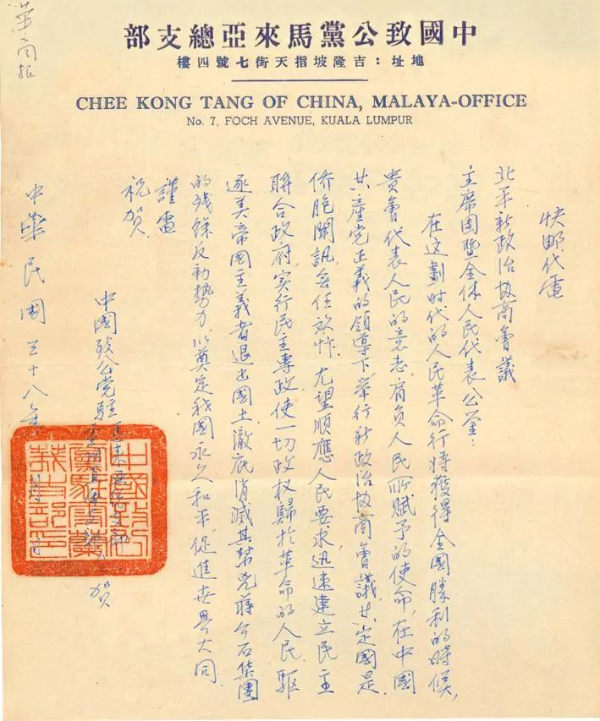 華商报
部支總亞來馬黨公致國中
樓四號七街天指坡隆吉：址地
CHEE KONG TANG OF CHINA, MALAYA-OFFICE
No. 7, FOCH AVENUE, KUALA LUMPUR
快邮代電
北平新政治協商會議
主席團暨全体人民代表公鉴：
在这劃时代的人民革命行将獲得全國勝利的時候，
贵會代表人民的意志，肩负人民所賦予的使命，在中國
共產党正義的領導下举行新政治协商會議，共定國是，
侨胞聞訊，至任欢忭，尤望順應人民要求，迅速建立民主
联合政府，实行民主專政，使一切政权歸於革命的人民，驅
逐美帝國主義者退出國土，澈底消滅其幫兇蔣介石集團
的残餘反動勢力，以奠定我國永久和平，促進世界大同。
謹電
祝贺。
中國致公党駐馬来亞總支部
賀
中華民國三十八年